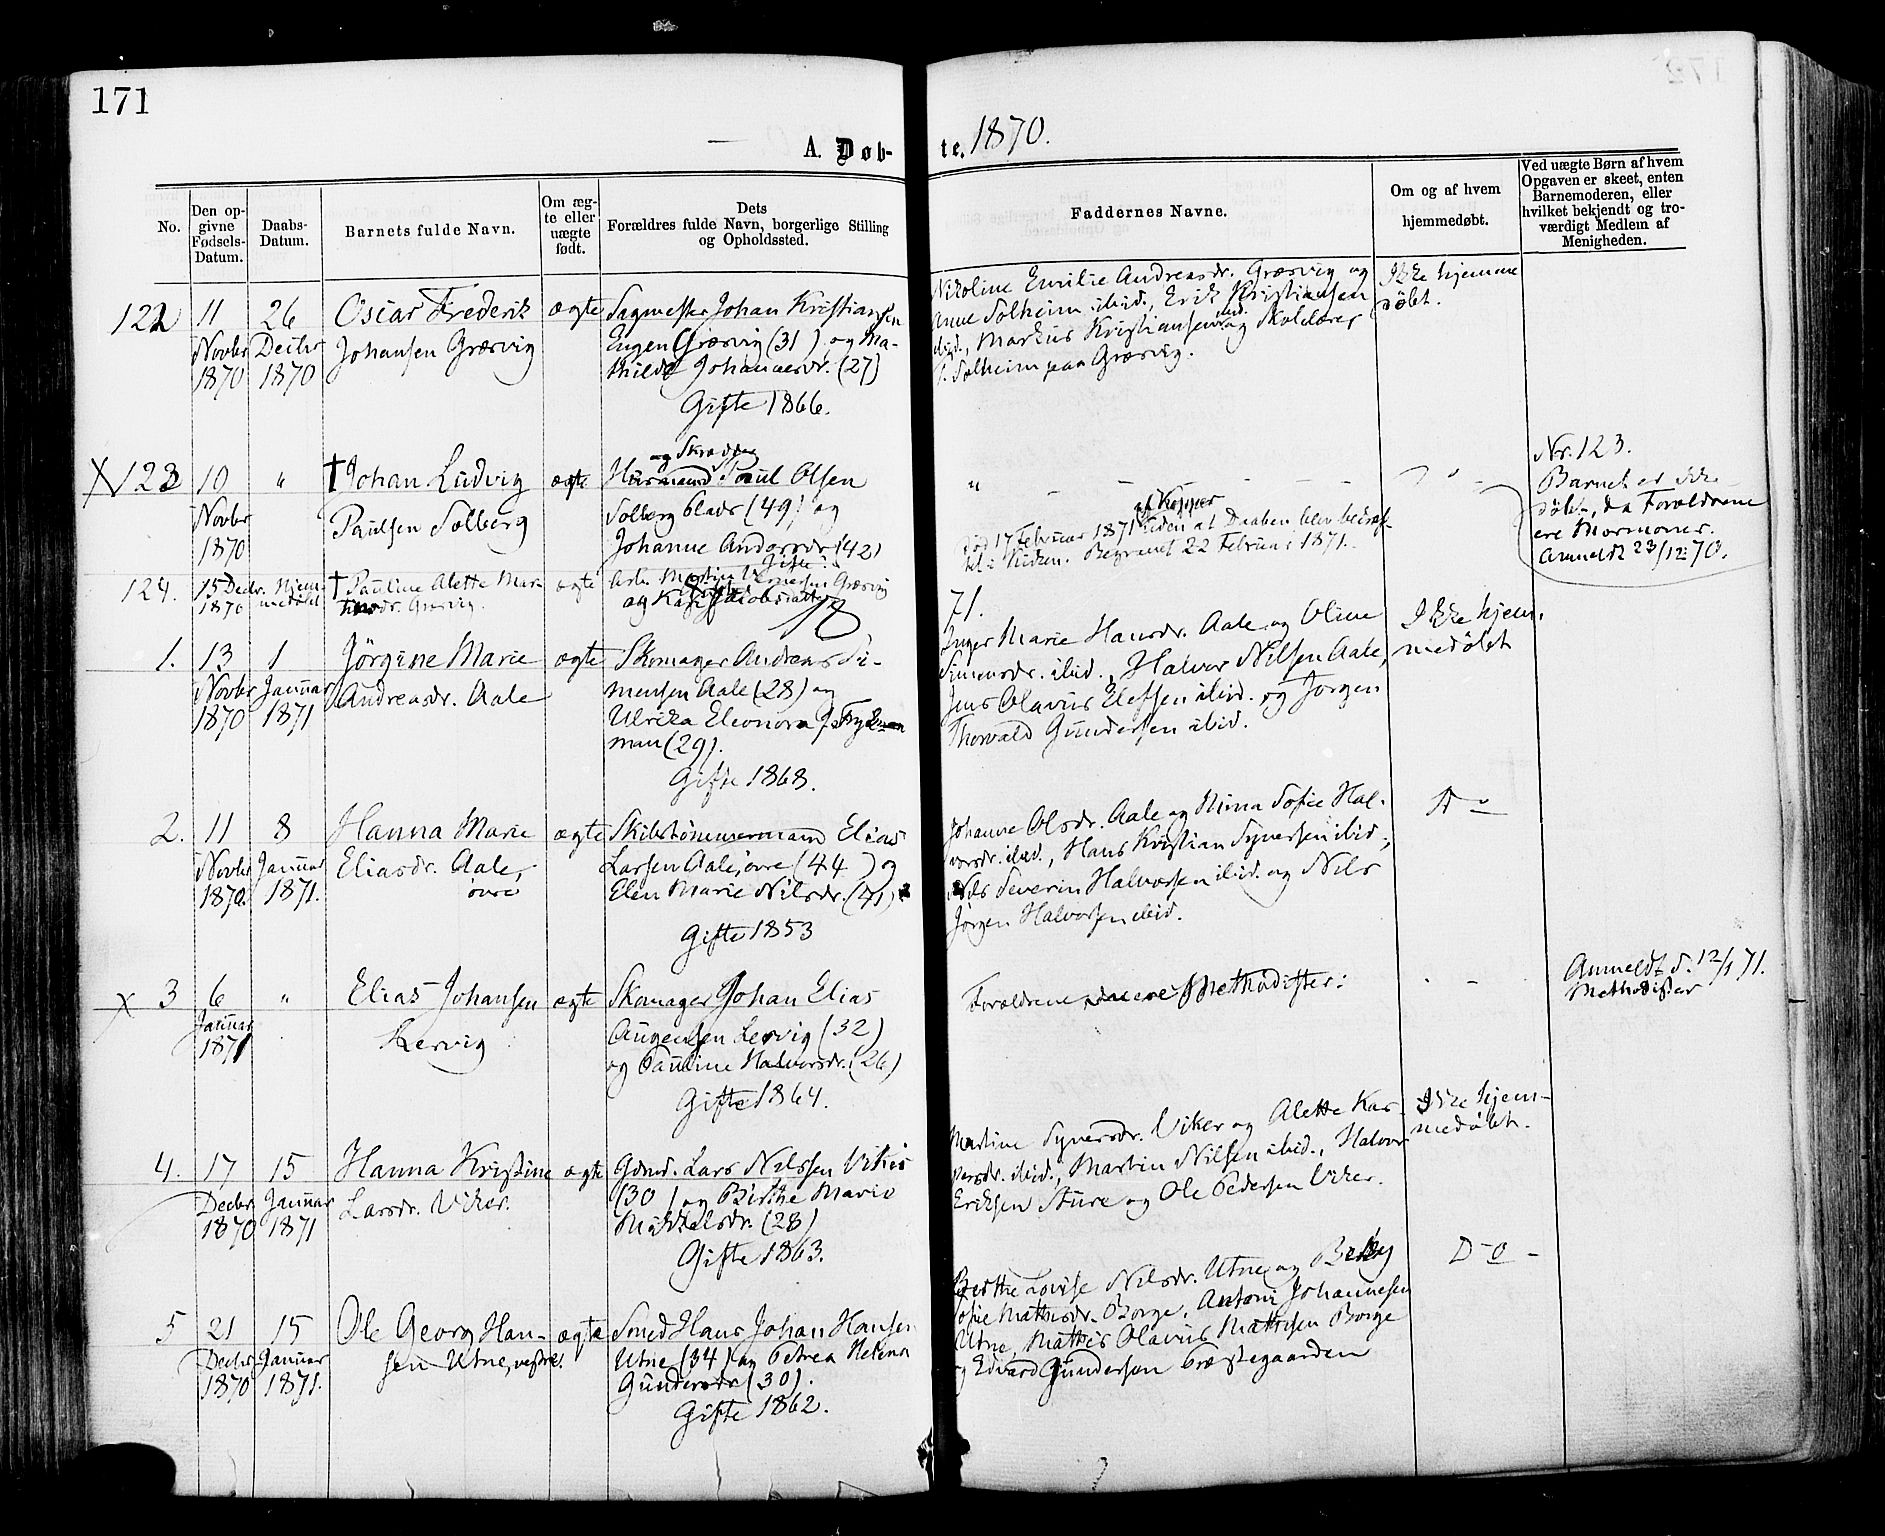 171
A. Døb-
te. 1870.
No.
Den op-
givne
Fødsels-
Datum.
Daabs-
Datum.
Barnets fulde Navn.
Om æg-
te eller
uægte
født.
Dets
Forældres fulde Navn, borgerlige Stilling
og Opholdssted.
Faddernes Navne.
Om og af hvem
hjemmedøbt.
Ved uægte Børn af hvem
Opgaven er skeet, enten
Barnemoderen, eller
hvilket bekjendt og tro-
værdigt Medlem af
Menigheden.
122
11
Novbr
1870
26
Decbr
1870
Oscar Frederik
Johansen Græsvig
ægte
Sagmester Johan Kristiansen
Engen Græsvig (31) og Ma-
thilde Johannesdr. (27)
Gifte 1866.
Nikoline Emilie Andreasdr. Græsvig og
Anne Solheim ibid., Erik Kristiansen
ibid., Markus Kristiansen ibid. og Skolelærer
Solheim paa Græsvig.
Ikke hjemme
døbt.
X 123
10
Novbr
1870
"
† Johan Ludvig
Paulsen Solberg
ægte
og Skrædder
Husmand Poul Olsen
Solberg (49) og
Johanne Andersdr (42)
Gifte
"
af Kopper
død 17 Februar 1871 uden at Daaben blev bekræf-
tet i Kirken. Begravet 22 Februar 1871.
Nr. 123.
Barnet er ikke
døbt, da Forældrene
ere Mormoner.
Anmeldt 23/12 70.
124.
15 Decbr.
1870
Hjem-
medøbt
† Pauline Alette Mar-
tinsdr. Græsvig.
ægte
Arb. Martin Græsvig
og
71.
1.
13
Novbr
1870
1
Januar
1871
Jørgine Marie
Andreasdr. Aale
ægte
Skomager Andreas Si-
mensen Aale (28) og
Ulrika Eleonora
man (29).
Gifte 1868.
Inger Marie Hansdr. Aale og Oline
Simensdr. ibid., Halvor Nilsen Aale,
Jens Olavus Elefsen ibid. og Jørgen
Thorvald Gundersen ibid.
Ikke hjem-
medøbt
2.
11
Novbr
1870.
8
Januar
1871.
Hanna Marie
Eliasdr. Aale,
øvre
ægte
Skibstømmermand Elias
Larsen Aale, øvre (44) og
Elen Marie Nilsdr. (41)
Gifte 1853
Johanne Olsdr. Aale og Nina Sofie Hal-
vorsdr. ibid., Hans Kristian Syversen ibid.,
Nils Severin Halvorsen ibid. og Nils
Jørgen Halvorsen ibid.
X 3
6
Januar
1871
"
Elias Johansen
Lervig
ægte
Skomager Johan Elias
Augensen Lervig (32)
og Pauline Halvorsdr. (26)
Gifte 1864.
Forældrene ere Methodister.
Anmeldt d. 12/1 71.
Methodister
4.
17
Decbr
1870
15
Januar
1871
Hanna Kristine
Larsdr. Viker.
ægte
Gdmd. Lars Nilssen Viker
(30) og Birthe Marie
Mikkelsdr. (28)
Gifte 1863.
Martine Syversdr. Viker og Alette Kas-
persdr. ibid., Martin Nilsen ibid., Halvor
Eriksen Sture og Ole Pedersen Viker.
Ikke hjem-
medøbt.
5
21
Decbr
1870
15
Januar
1871.
Ole Georg Han-
sen Utne, vestre.
ægte
Smed Hans Johan Hansen
Utne (34) og Petrea Helena
Gundersdr (30).
Gifte 1862.
Birthe Lovise Nilsdr. Utne og
Sofie Mathisdr. Borge, Antoni Johannesen
Utne, Mathis Olavus Mathisen Borge
og Edvard Gundersen Præstegaarden
D-o -